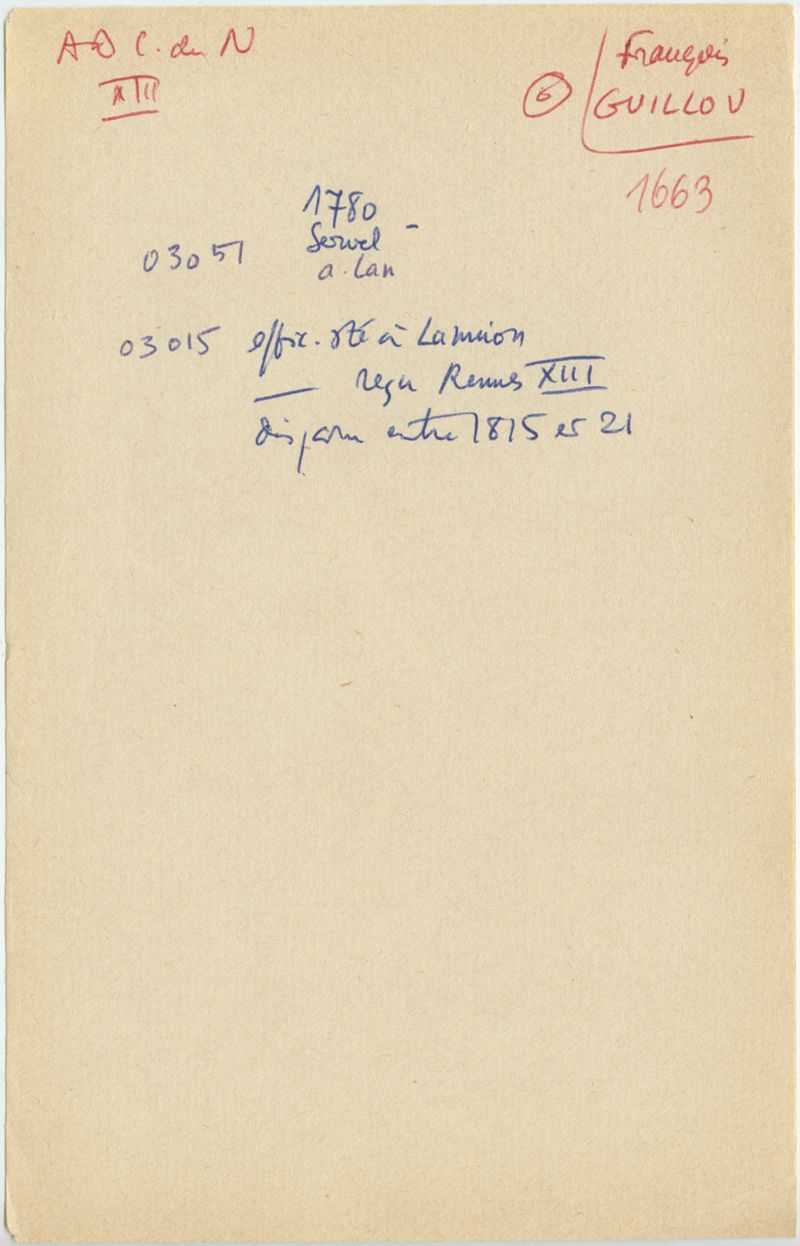 AD C. du N
XIII
6
François
GUILLOU
1663
1780
03051 Servel -
a. Lan
03015 offic. sté à Lannion
— reçu Rennes XIII
disparu entre 1815 et 21